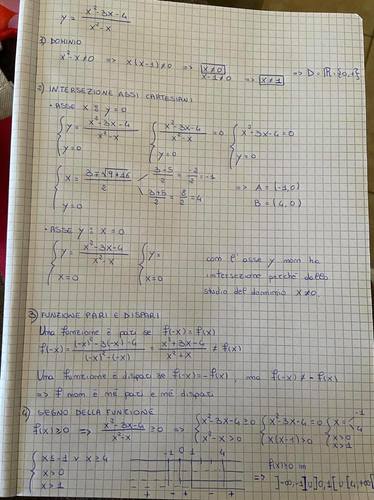 y = x²-3x-4 / x²-x
1) DOMINIO
x²-x≠0 => x(x-1)≠0 => x≠0 x-1≠0 => x≠1 => D= ℝ-{0,1}
2) INTERSEZIONE ASSI CARTESIANI
• ASSE X : y=0
{ y= x²-3x-4 / x²-x { x²-3x-4 / x²-x =0 { x²-3x-4=0
{ y=0 { y=0 { y=0
{ x= 3∓√9+16 / 2 3-5/2 = -2/2 = -1 => A = (-1,0)
{ y=0 3+5/2 = 8/2 = 4 B = (4,0)
• ASSE y : x=0
{ y= x²-3x-4 / x²-x { y= con l'asse y non ha
{ x=0 { x=0 intersezione perché dallo
studio del dominio x≠0.
3) FUNZIONE PARI E DISPARI
Una funzione è pari se f(-x)=f(x)
f(-x)= (-x)²-3(-x)-4 / (-x)²-(-x) = x²+3x-4 / x²+x ≠ f(x)
Una funzione è dispari se f(-x)=-f(x) ma f(-x)≠-f(x)
=> f non è né pari e né dispari
4) SEGNO DELLA FUNZIONE
f(x)≥0 => x²-3x-4 / x²-x ≥0 => { x²-3x-4≥0 { x²-3x-4=0 { x= -1 4
{ x²-x>0 { x(x-1)>0 { x>0 x>1
{ x≤-1 v x≥4 -1 0 1 4 f(x)≥0 in
{ x>0 => ]-∞,-1]∪]0,1[∪[4,+∞[
{ x>1 + - + - +